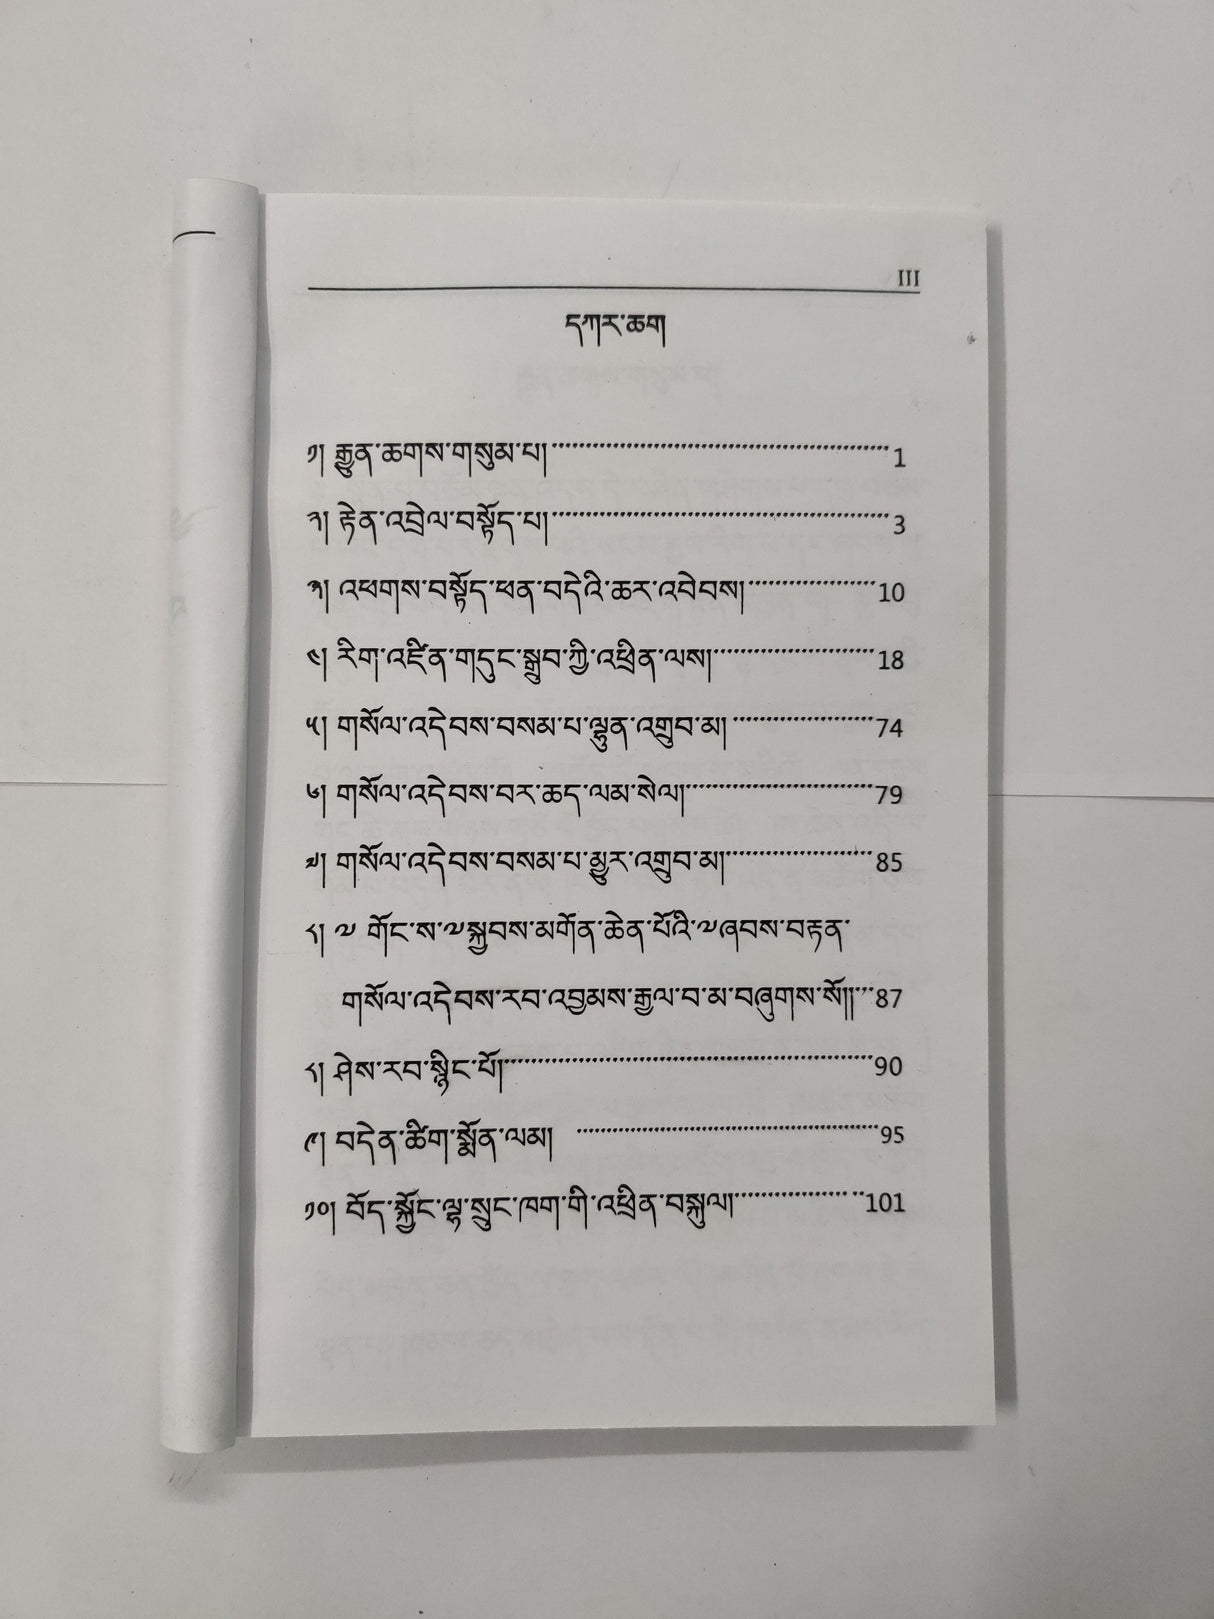 III
དཀར་ཆག
༡། རྒྱུན་ཆགས་གསུམ་པ།........................................1
༢། རྟེན་འབྲེལ་བསྟོད་པ།........................................3
༣། འཕགས་བསྟོད་ཕན་བདེའི་ཆར་འབེབས།....................10
༤། རིག་འཛིན་གདུང་སྒྲུབ་ཀྱི་འཕྲིན་ལས།....................18
༥། གསོལ་འདེབས་བསམ་པ་ལྷུན་འགྲུབ་མ།....................74
༦། གསོལ་འདེབས་བར་ཆད་ལམ་སེལ།....................79
༧། གསོལ་འདེབས་བསམ་པ་མྱུར་འགྲུབ་མ།....................85
༨། ༸ གོང་ས་༸སྐྱབས་མགོན་ཆེན་པོའི་༸ཞབས་བརྟན་
གསོལ་འདེབས་རབ་འབྱམས་རྒྱལ་བ་མ་བཞུགས་སོ།།...87
༨། ཤེས་རབ་སྙིང་པོ།........................................90
༩། བདེན་ཚིག་སྨོན་ལམ། ........................................95
༡༠། བོད་སྐྱོང་ལྷ་སྲུང་ཁག་གི་འཕྲིན་བསྐུལ།....................101